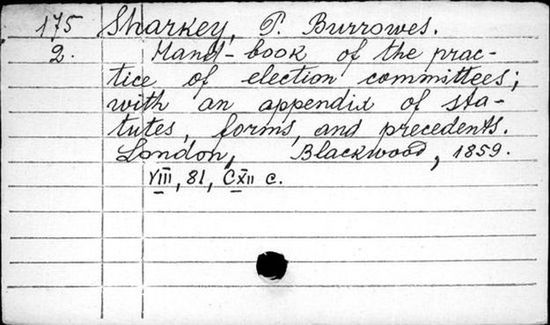 175 Sharkey, P. Burrowes.
2. Hand-book of the prac-
tice of election committees;
with an appendix of sta-
tutes, forms, and precedents.
London, Blackwood, 1859.
VIII, 81, CXII c.